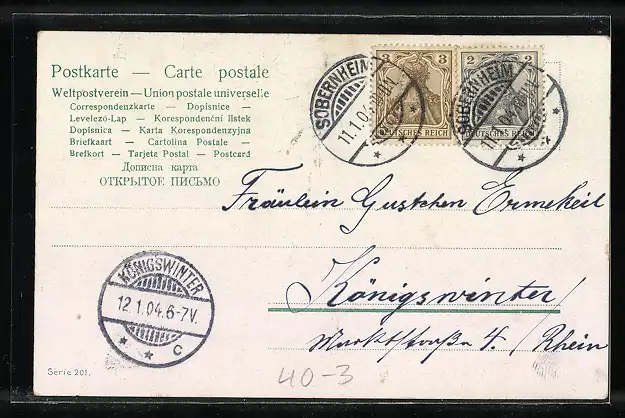 Postkarte — Carte postale
Weltpostverein — Union postale universelle
Correspondenzkarte — Dopisnice —
Levelező-Lap — Korespondenční lístek
Dopisnica — Karta Korespondenzyjna
Briefkaart — Cartolina Postale —
Brefkort — Tarjeta Postal — Postcard
Дописна карта
ОТКРЫТОЕ ПИСЬМО
SOBERNHEIM
11.1.04
3 3
DEUTSCHES REICH
2 2
DEUTSCHES REICH
SOBERNHEIM
11.1.04
Fräulein Gustchen Ermekeil
Königswinter/
Marktstraße 4. / Rhein
KÖNIGSWINTER
12.1.04.6-7V.
* * C
Serie 201.
40-3